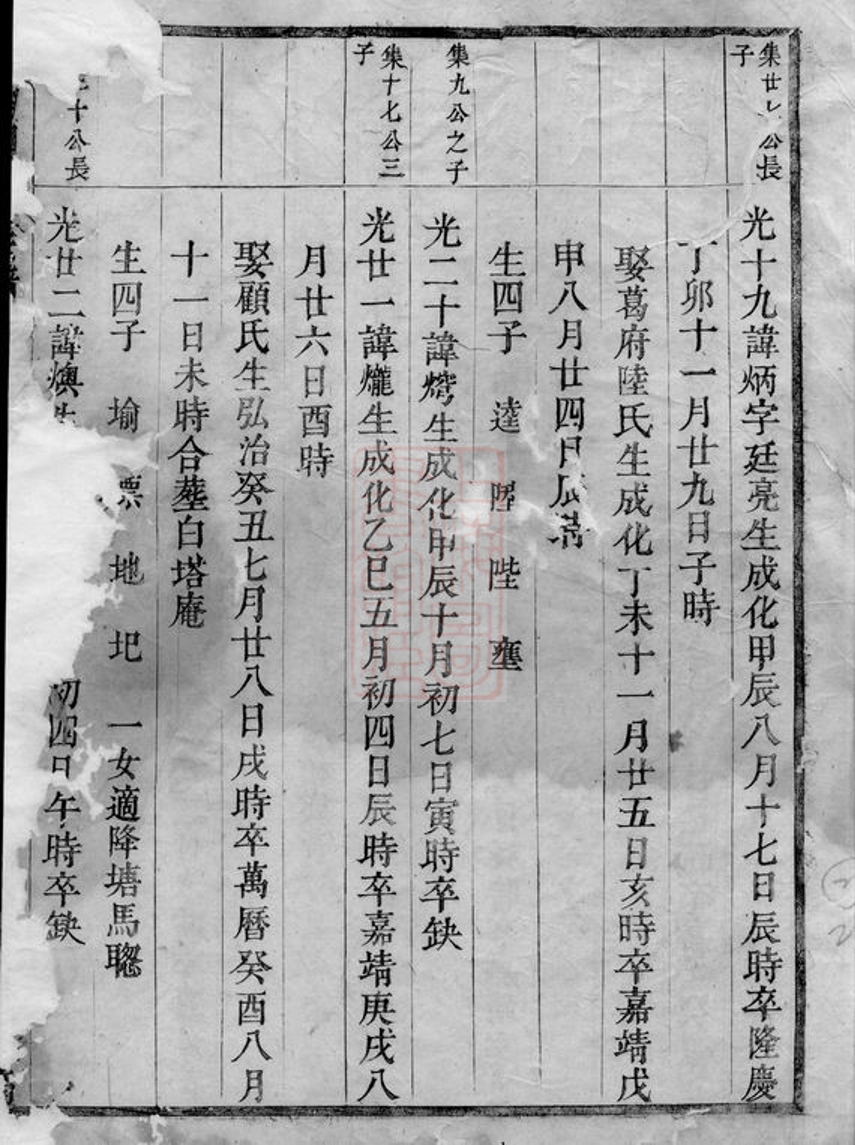 集廿七公長子
光十九諱炳字廷亮生成化甲辰八月十七日辰時卒隆慶
丁卯十一月廿九日子時
娶葛府陸氏生成化丁未十一月廿五日亥時卒嘉靖戊
申八月廿四日辰時
生四子 達 陞 陛 壅
集九公之子
光二十諱生成化甲辰十月初七日寅時卒缺
集十七公三子
光廿一諱爖生成化乙巳五月初四日辰時卒嘉靖庚戌八
月廿六日酉時
娶顧氏生弘治癸丑七月廿八日戌時卒萬曆癸酉八月
十一日未時合塟白塔庵
生四子 堬 地 圯 一女適降塘馬聰
十公長
光廿二諱燠生
初四日午時卒缺